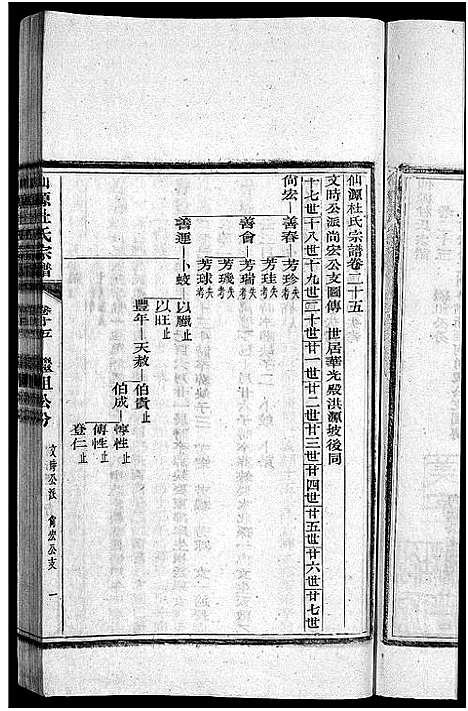 仙源杜氏宗譜卷二十五
文時公派尚宏公支圖傳　世居華光殿洪源坡後同
十七世十八世十九世二十世廿一世廿二世廿三世廿四世廿五世廿六世廿七世
尚宏—善春—芳珍失考
芳珪失考
善會—芳瑞失考
芳璣失考
芳球失考
善運—小蛟—以臘止
以旺止
豐年—天赦—伯貴止
伯成—惇性止
傳性止
登仁止
仙源杜氏宗譜
繼祖公分
文時公派　尚宏公支　一